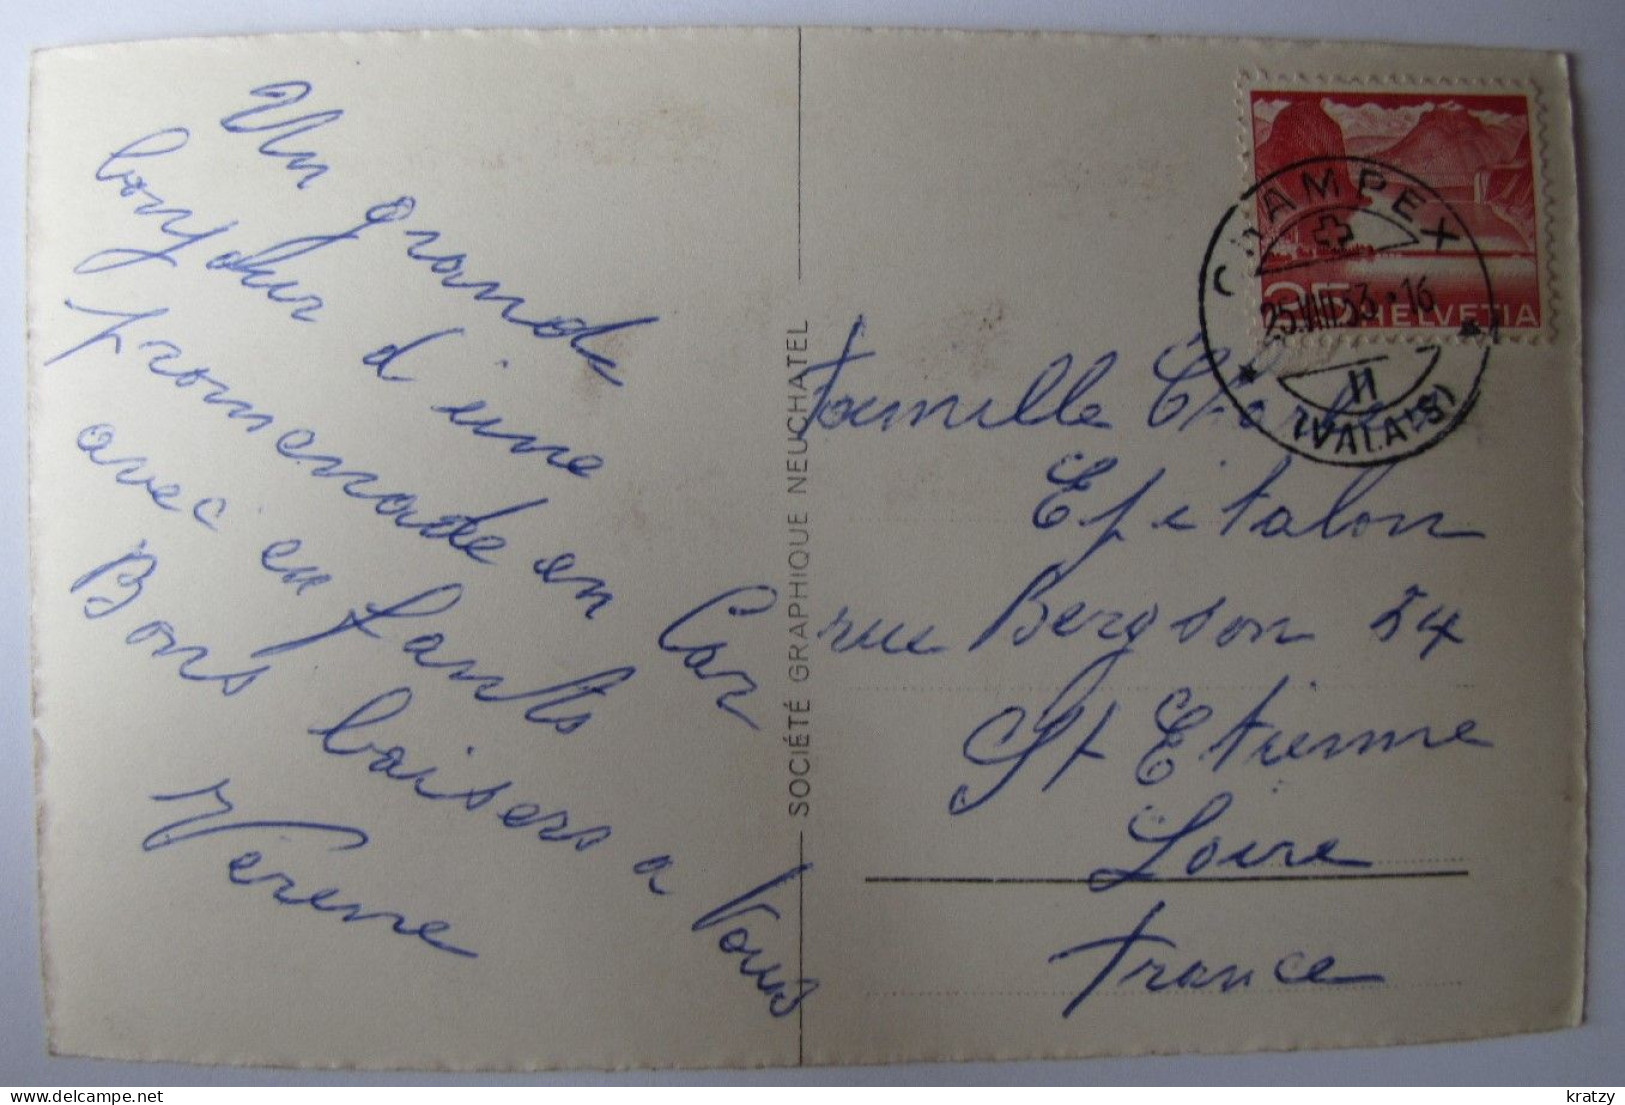 Un grande
bonjour d'une
promenade en Car
avec enfants
Bons baisers a Vous
Verene
SOCIÉTÉ GRAPHIQUE NEUCHATEL
CHAMPEX
25.VIII.53.-16
II
(VALAIS)
25 HELVETIA
Famille
Epitalon
rue Bergson 54
St Etienne
Loire
France
delcampe.net
kratzy